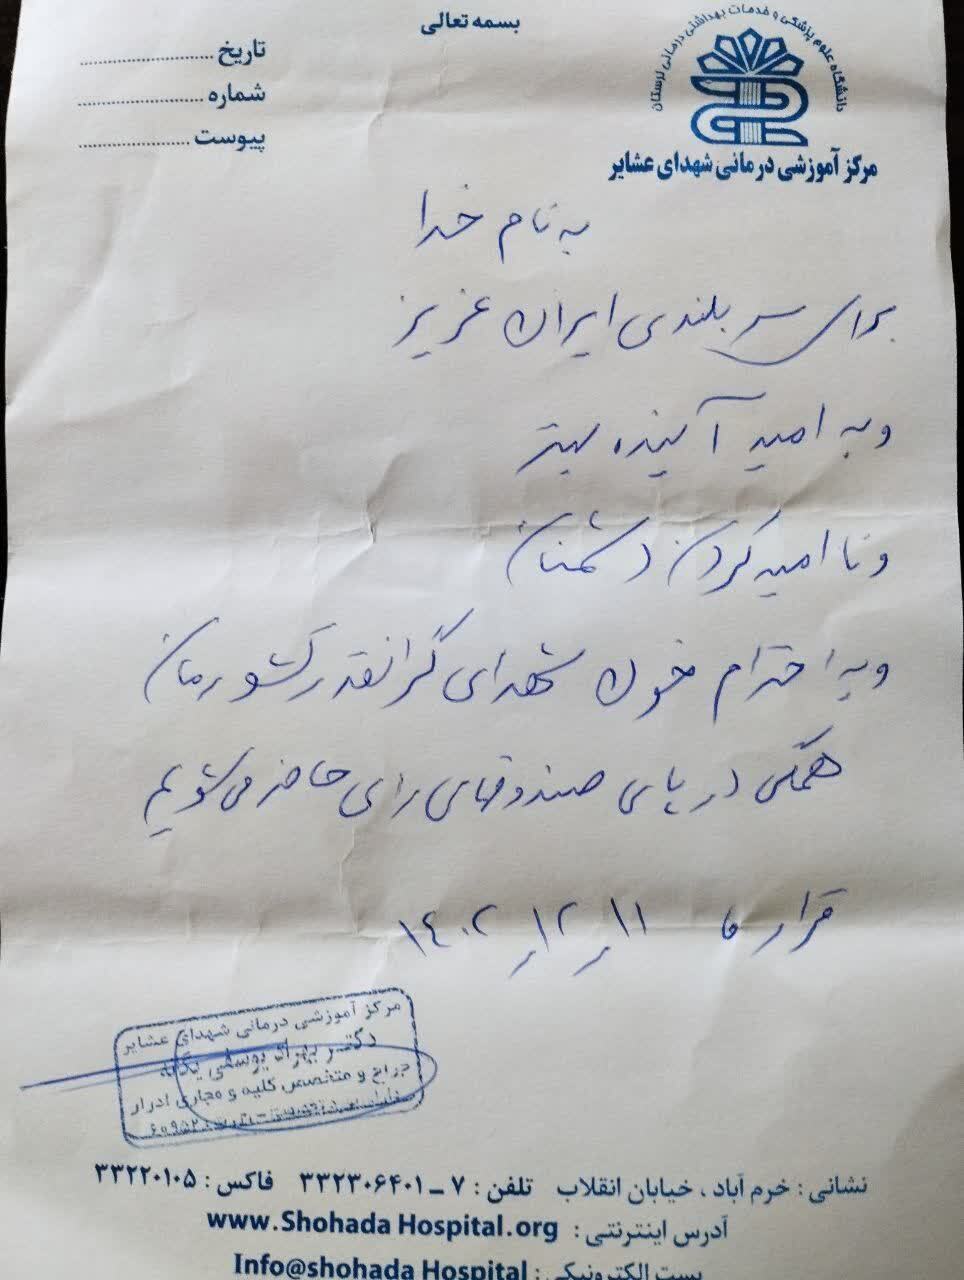 بسمه تعالی
دانشگاه علوم پزشکی و خدمات بهداشتی درمانی لرستان
مرکز آموزشی درمانی شهدای عشایر
تاریخ ....................
شماره ....................
پیوست ....................
به نام خدا
برای سربلندی ایران عزیز
و به امید آینده بهتر
و نا امید کردن دشمنان
و به احترام خون شهدای گرانقدر کشورمان
همگی در پای صندوقهای رای حاضر می شویم
قرار ما ۱۱ر۱۲ر۱۴۰۲
مرکز آموزشی درمانی شهدای عشایر
دکتر بهزاد یوسفی یگانه
جراح و متخصص کلیه و مجاری ادرار
نشانی : خرم آباد ، خیابان انقلاب تلفن : ۷ ــ ۳۳۲۳۰۶۴۰۱ فاکس : ۳۳۲۲۰۱۰۵
آدرس اینترنتی : www.Shohada Hospital.org
پست الکترونیکی : Info@shohada Hospital